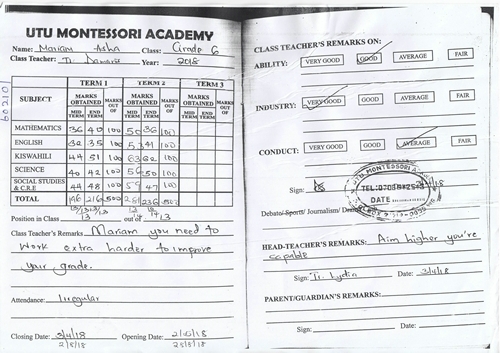 UTU MONTESSORI ACADEMY
Name: Mariam Asha Class: Grade 6
Class Teacher: Tr. Year: 2018
TERM 1 TERM 2 TERM 3
SUBJECT MARKS OBTAINED MARKS OUT OF MARKS OBTAINED MARKS OUT OF MARKS OBTAINED MARKS OUT OF
MID TERM END TERM MID TERM END TERM MID TERM END TERM
MATHEMATICS 36 40 100 50 36 100
ENGLISH 32 35 100 53 41 100
KISWAHILI 44 51 100 63 62 100
SCIENCE 40 42 100 56 50 100
SOCIAL STUDIES & C.R.E 44 48 100 59 47 100
TOTAL 196 216 500 281 236 500
Position in Class 13 out of 13
Class Teacher's Remarks Mariam you need to
work extra harder to improve
your grade.
Attendance: Irregular
Closing Date: 3/4/18 Opening Date:
2/8/18
CLASS TEACHER'S REMARKS ON:
ABILITY: VERY GOOD GOOD AVERAGE FAIR
INDUSTRY: VERY GOOD GOOD AVERAGE FAIR
CONDUCT: VERY GOOD GOOD AVERAGE FAIR
UTU MONTESSORI
Sign:
TEL:
DATE
Debate/ Sports/ Journalism/
HEAD-TEACHER'S REMARKS: Aim higher you're
capable
Sign: Tr. Lydia Date: 3/4/18
PARENT/GUARDIAN'S REMARKS:
Sign: Date: